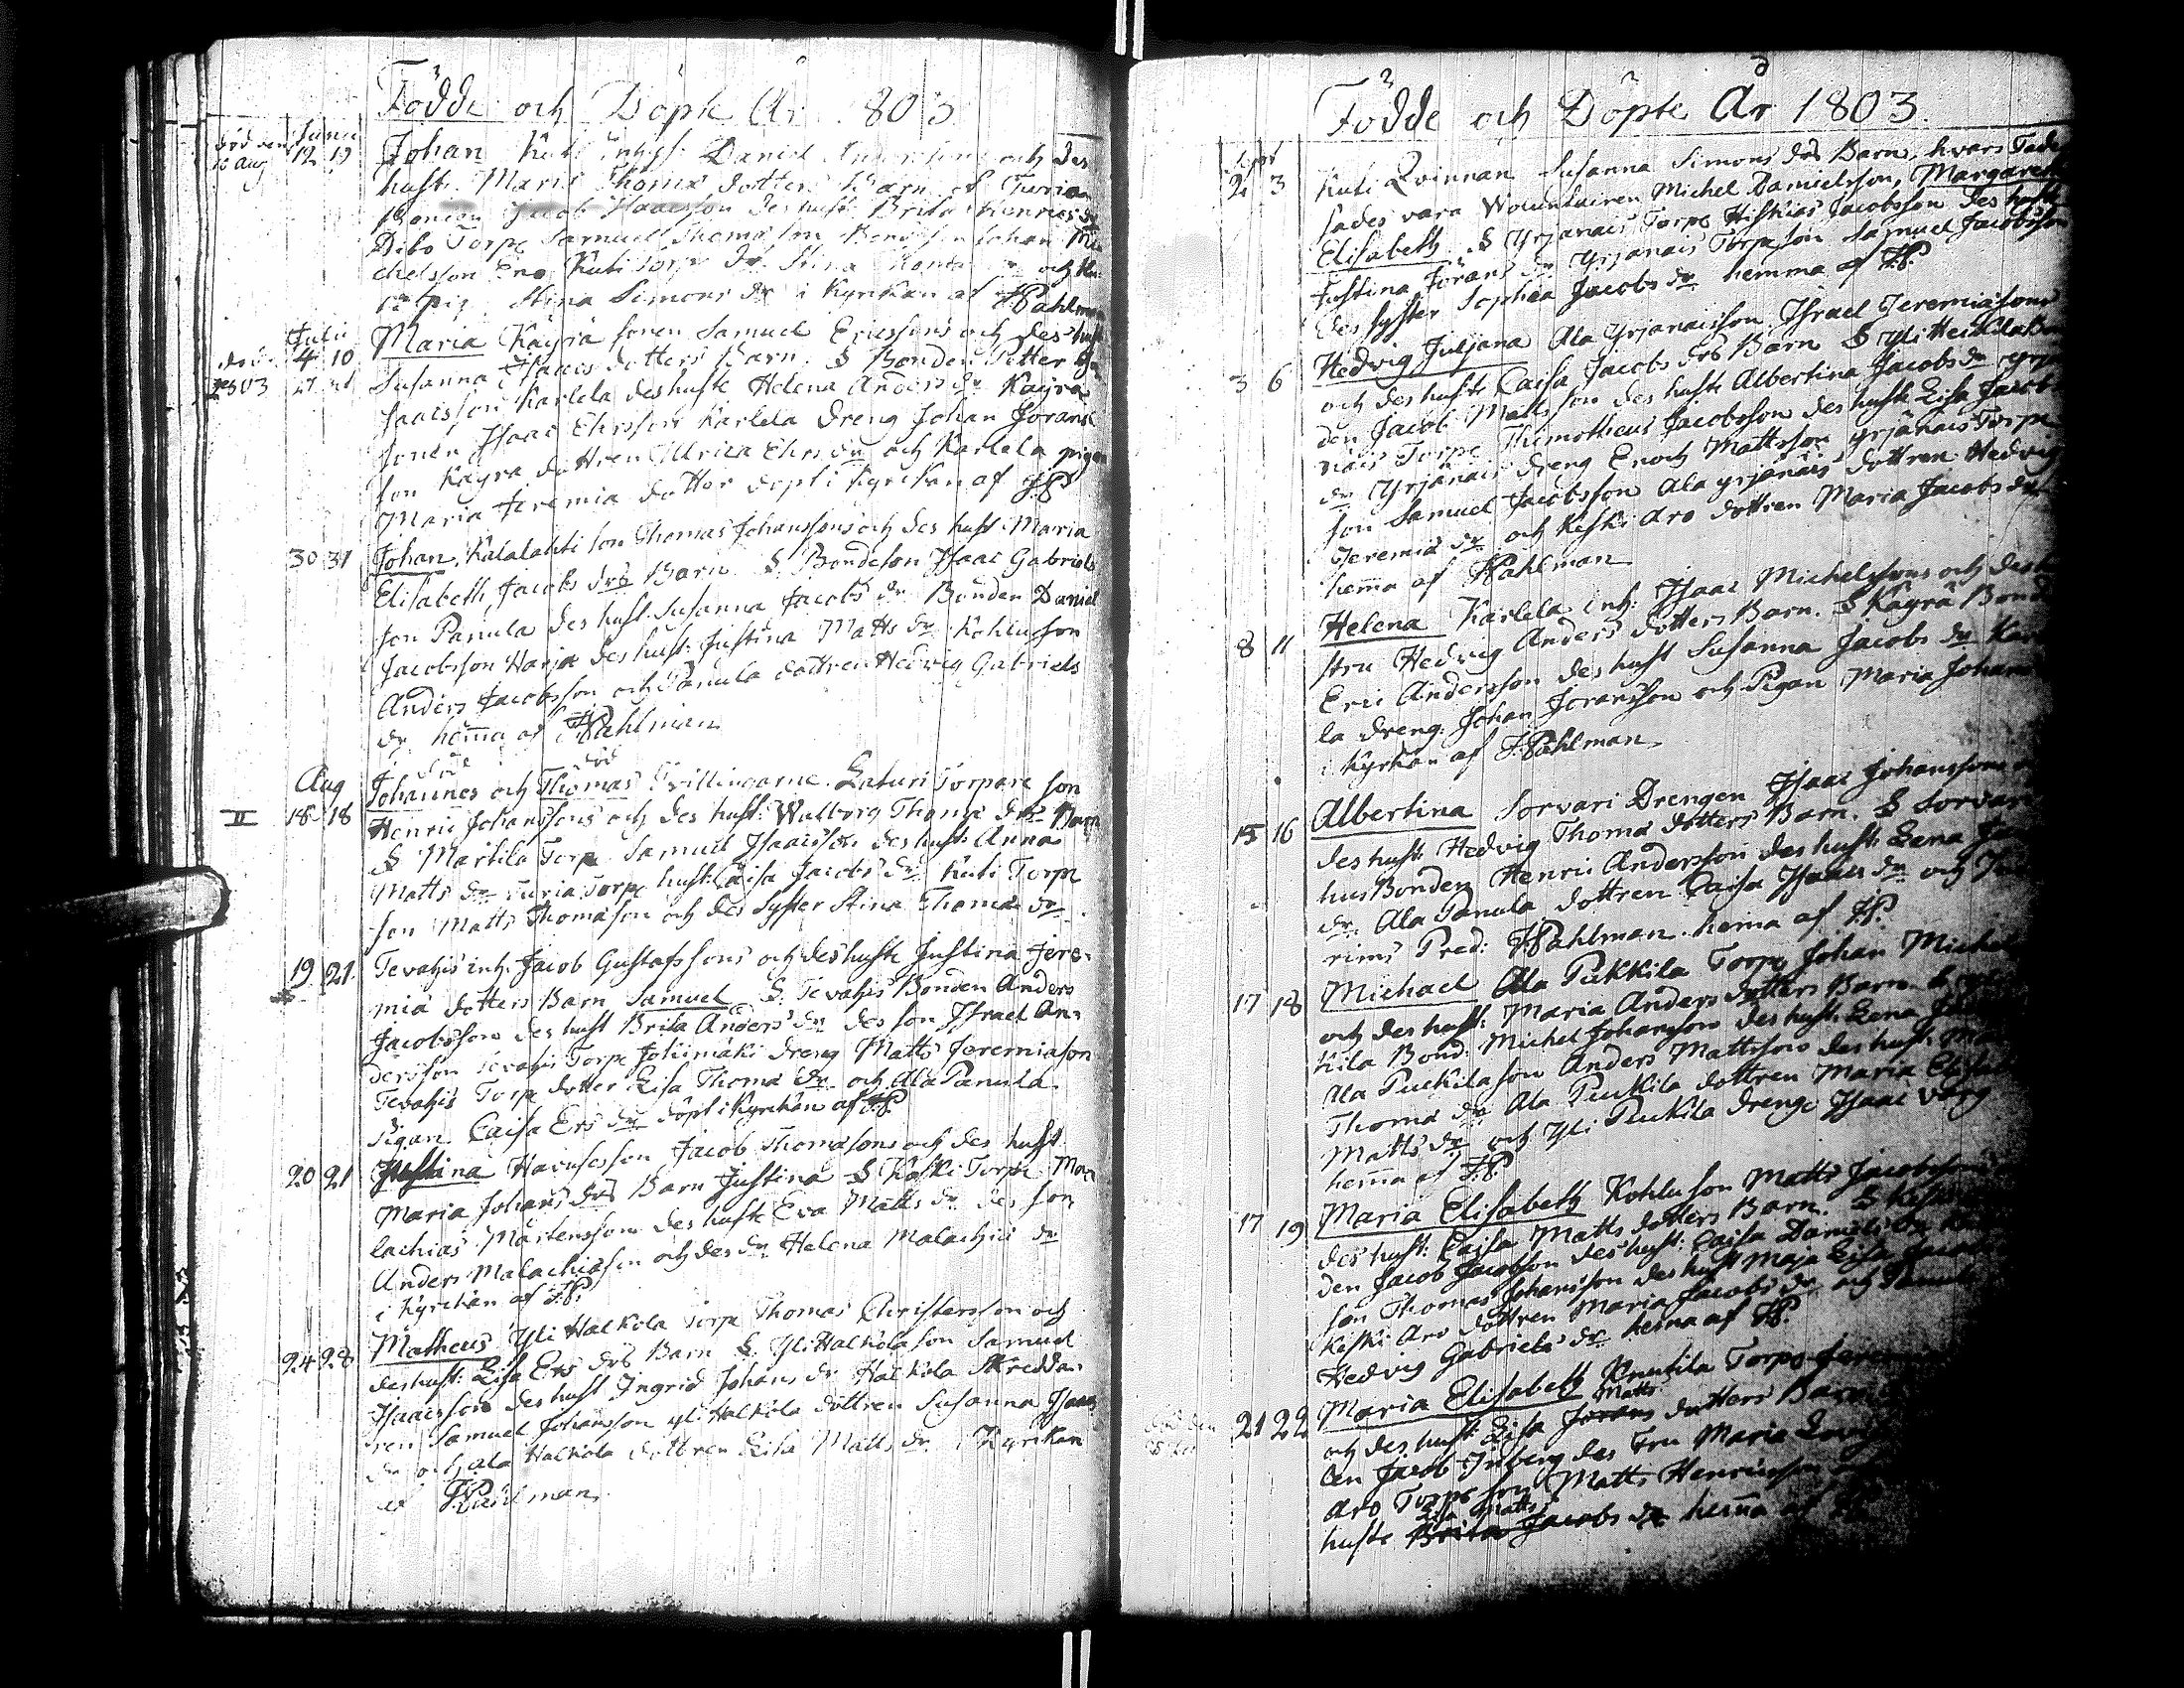 Födde och Döpte År 1803
död den 16 Aug
Junii
12 19
Johan Kuti inhys: Daniel och des
hust: Maria Thomæ dotters Barn
Bonden Jacob Isaacsson des hust: Brita Henrics dr
Torp Samuel Thomasson Johan Mi-
chelsson Kuti Torp dr Stina och Ku-
Stina Simons dr i Kyrkan af Pahlman
Julii
4 10
1803
Maria Käyrä sonen Samuel Ericssons och des hust
Susanna Isaacs dotters Barn. S Bonden Petter
Isaacsson Karlela des hustr Helena Anders dr Käyrä
sonen Isaac Ehrsson Karlela Dreng Johan Jörans
son Käyrä dottren Ulrica Ehrs dr och Karlela pigan
Maria Jeremiæ dotter döpt i Kyrkan af JP
30 31
Johan, Kalalahti son Thomas Johanssons och des hust: Maria
Elisabeth Jacobs drs Barn. S. Bondeson Isaac Gabriels
son Panula des hust Susanna Jacobs dr Bonden Daniel
Jacobsson Harja des hust: Justina Matts dr Kohluson
Anders Jacobsson och Panula dottren Hedvig Gabriels
dr hema af Pahlman
Aug
död död
II 18 18
Johannes och Thomas Tvillingarne. Laturi Torpare son
Henric Johanssons och des hust: Walborg Thomæ drs Barn
S Martila Torp Samuel Isaacsson des hust: Anna
Matts dr Turia Torp hust: Caisa Jacobs dr Kuti Torp
son Matts Thomasson och des Syster Stina Thomæ dr
19 21
Tevahis inh: Jacob Gustafssons och des hustr Justina Jere-
miæ dotters Barn Samuel S. Tevahis Bonden Anders
Jacobsson des hust Brita Anders dr des son Israel An-
dersson Tevahis Torp Jokimäki Dreng Matts Jeremiason
Tevahis Torp dotter Lisa Thomæ dr och Ala Panula
Pigan Caisa Ers dr döpt i Kyrkan af JP
20 21
Justina Jacob Thomasons och des hust
Maria Johans drs Barn Justina S Koski Torp Ma-
lachias Mårtensson des hustr Eva Matts dr des son
Anders Malachiason och des dr Helena Malachiæ dr
i Kyrkan af J:P:
24 28
Matheus Yli Halkola Torp Thomas Christersson och
des hust: Lisa Ers drs Barn S. Yli Halkola son Samuel
Isaacsson des hust Ingrid Johans dr Halkola Skredda-
ren Samuel Johansson yli Halkola dottren Susanna Isaacs
dr och ala Halkola dottren Lisa Matts dr i Kyrkan
af Pahlman
Födde och Döpte År 1803.
Sept
2 3
Kuti Qvinnan Susanna Simons drs Barn, hvars Fader
sades vara Wolunteiren Michel Danielsson, Margareta
Elisabeth. S Yrjänäis Torp Hiskias Jacobsson des hustr
Justina Jörans dr Yrjänäis Torpeson Samuel Jacobsson
des syster Sophia Jacobs dr hemma af JP
3 6
Hedvig Juljana Ala Yrjänäisson Israel Jeremiasons
och des hust Caisa Jacobs drs Barn S Yli Heickilä Bon
den Jacob Mattsson des hustr Albertina Jacobs dr Yrjä
näis Torp Thimotheus Jacobsson des hustr Lisa Jacobs
dr Yrjänäis Dreng Enoch Mattsson yrjänäis Torpe
son Samuel Jacobsson Ala yrjänäis dottren Hedvig
Jeremiæ dr och Keski Aro dottren Maria Jacobs dr
hema af Pahlman
8 11
Helena Karlela inh: Isaac Michelssons och des hu
stru Hedvig Anders dotters Barn. S Käyrä Bond
Eric Andersson des hust Susanna Jacobs dr Karle
la Dreng: Johan Joransson och Pigan Maria Johans
i Kyrkan af J:Pahlman
15 16
Albertina Sorvari Drengen Isaac Johanssons
des hust: Hedvig Thomæ dotters Barn. S Sorvari
hus Bonden Henric Andersson des hust: Lena
dr. Ala Panula dottren Caisa Isaacs dr och
rims Pred: Pahlman. hema af J:P.
17 18
Michael Ala Pukkila Torp Johan Michels
och des hust: Maria Anders dotters Barn.
kila Bond: Michel Johansson des hust: Lena
Ala Puckila son Anders Mattsson des hust:
Thomæ dr Ala Puckila dottren Maria Elisab
Matts dr och Yli Puckila drenge Isaac Varg
hema af J:P.
17 19
Maria Elisabeth Kohluson Matts Jacobsson
des hust: Caisa Matts dotters Barn. S Keski
den Jacob Jacobsson des hust: Caisa Daniels dr
son Thomas Johansson des hust Maja Lisa Jacobs
Keski Aro dottren Maria Jacobs dr och Panula
Hedvig Gabriels dr hema af JP.
21 22
Maria Elisabeth Knutila Torp
Matts
och des hust: Lisa Jörans dotters Barn
len Jacob Inberg des Fru Maria
Aro Torpe son Matts Henricsson
Lisa Matts
hustr Brita Jacobs dr hema af